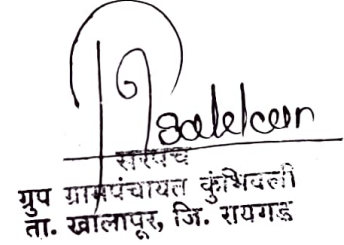 सरपंच
ग्रुप ग्रामपंचायत कुंभिवली
ता. खालापूर, जि. रायगड